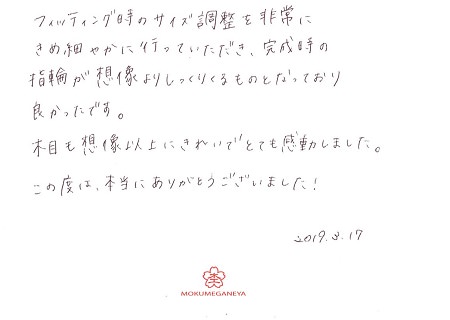 フィッティング時のサイズ調整を非常に
きめ細やかに行っていただき、完成時の
指輪が想像よりしっくりくるものとなっており
良かったです。
木目も想像以上にきれいでとても感動しました。
この度は、本当にありがとうございました！
2019.3.17
MOKUMEGANEYA